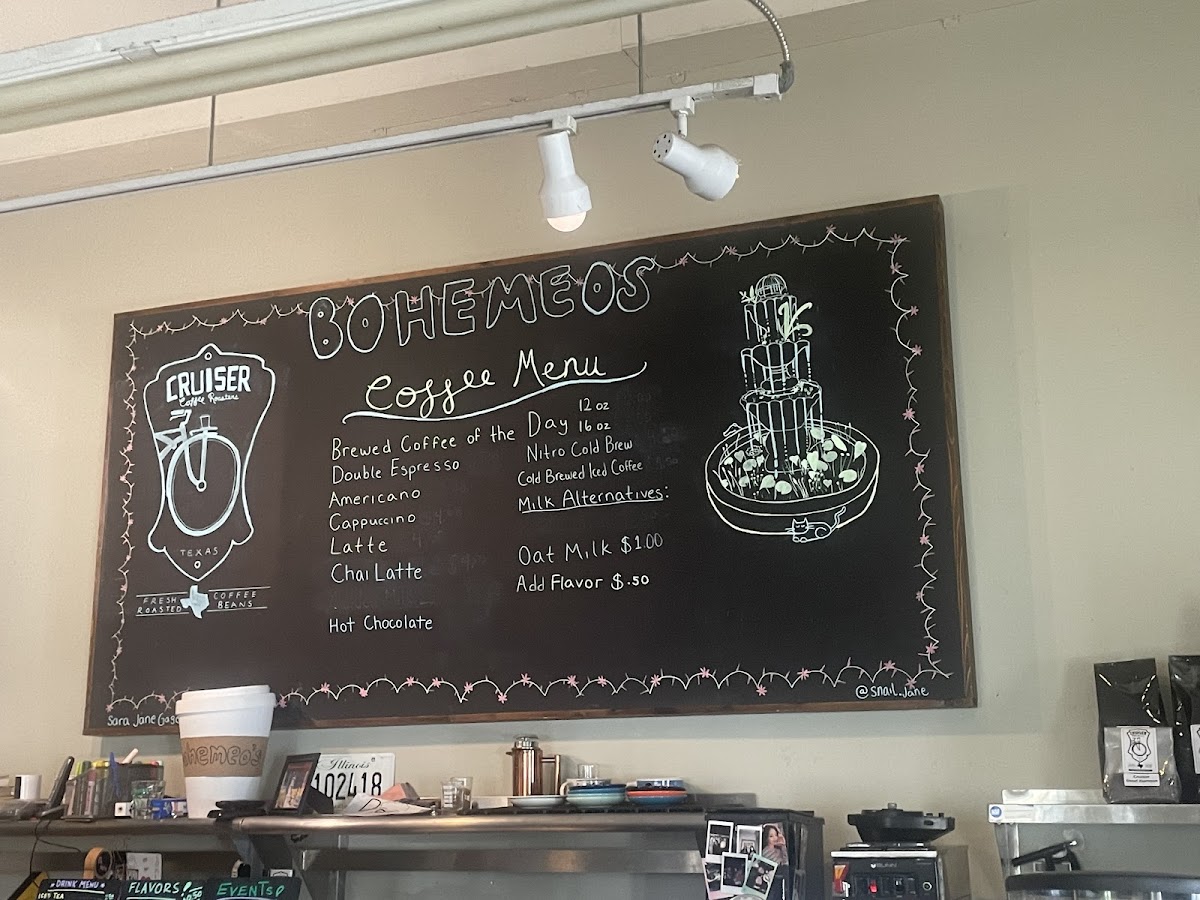 BOHEMEOS
CRUISER
Coffee Roasters
TEXAS
FRESH ROASTED
COFFEE BEANS
Coffee Menu
Brewed Coffee of the Day 12 oz
16 oz
Double Espresso
Americano
Cappuccino
Latte
Chai Latte
Hot Chocolate
Nitro Cold Brew
Cold Brewed Iced Coffee
Milk Alternatives:
Oat Milk $1.00
Add Flavor $.50
Sara Jane
@snail.jane
BOHEMEO'S
Illinois
102418
DRINK MENU
ICED TEA
FLAVORS!
EVENTS!
CRUISER